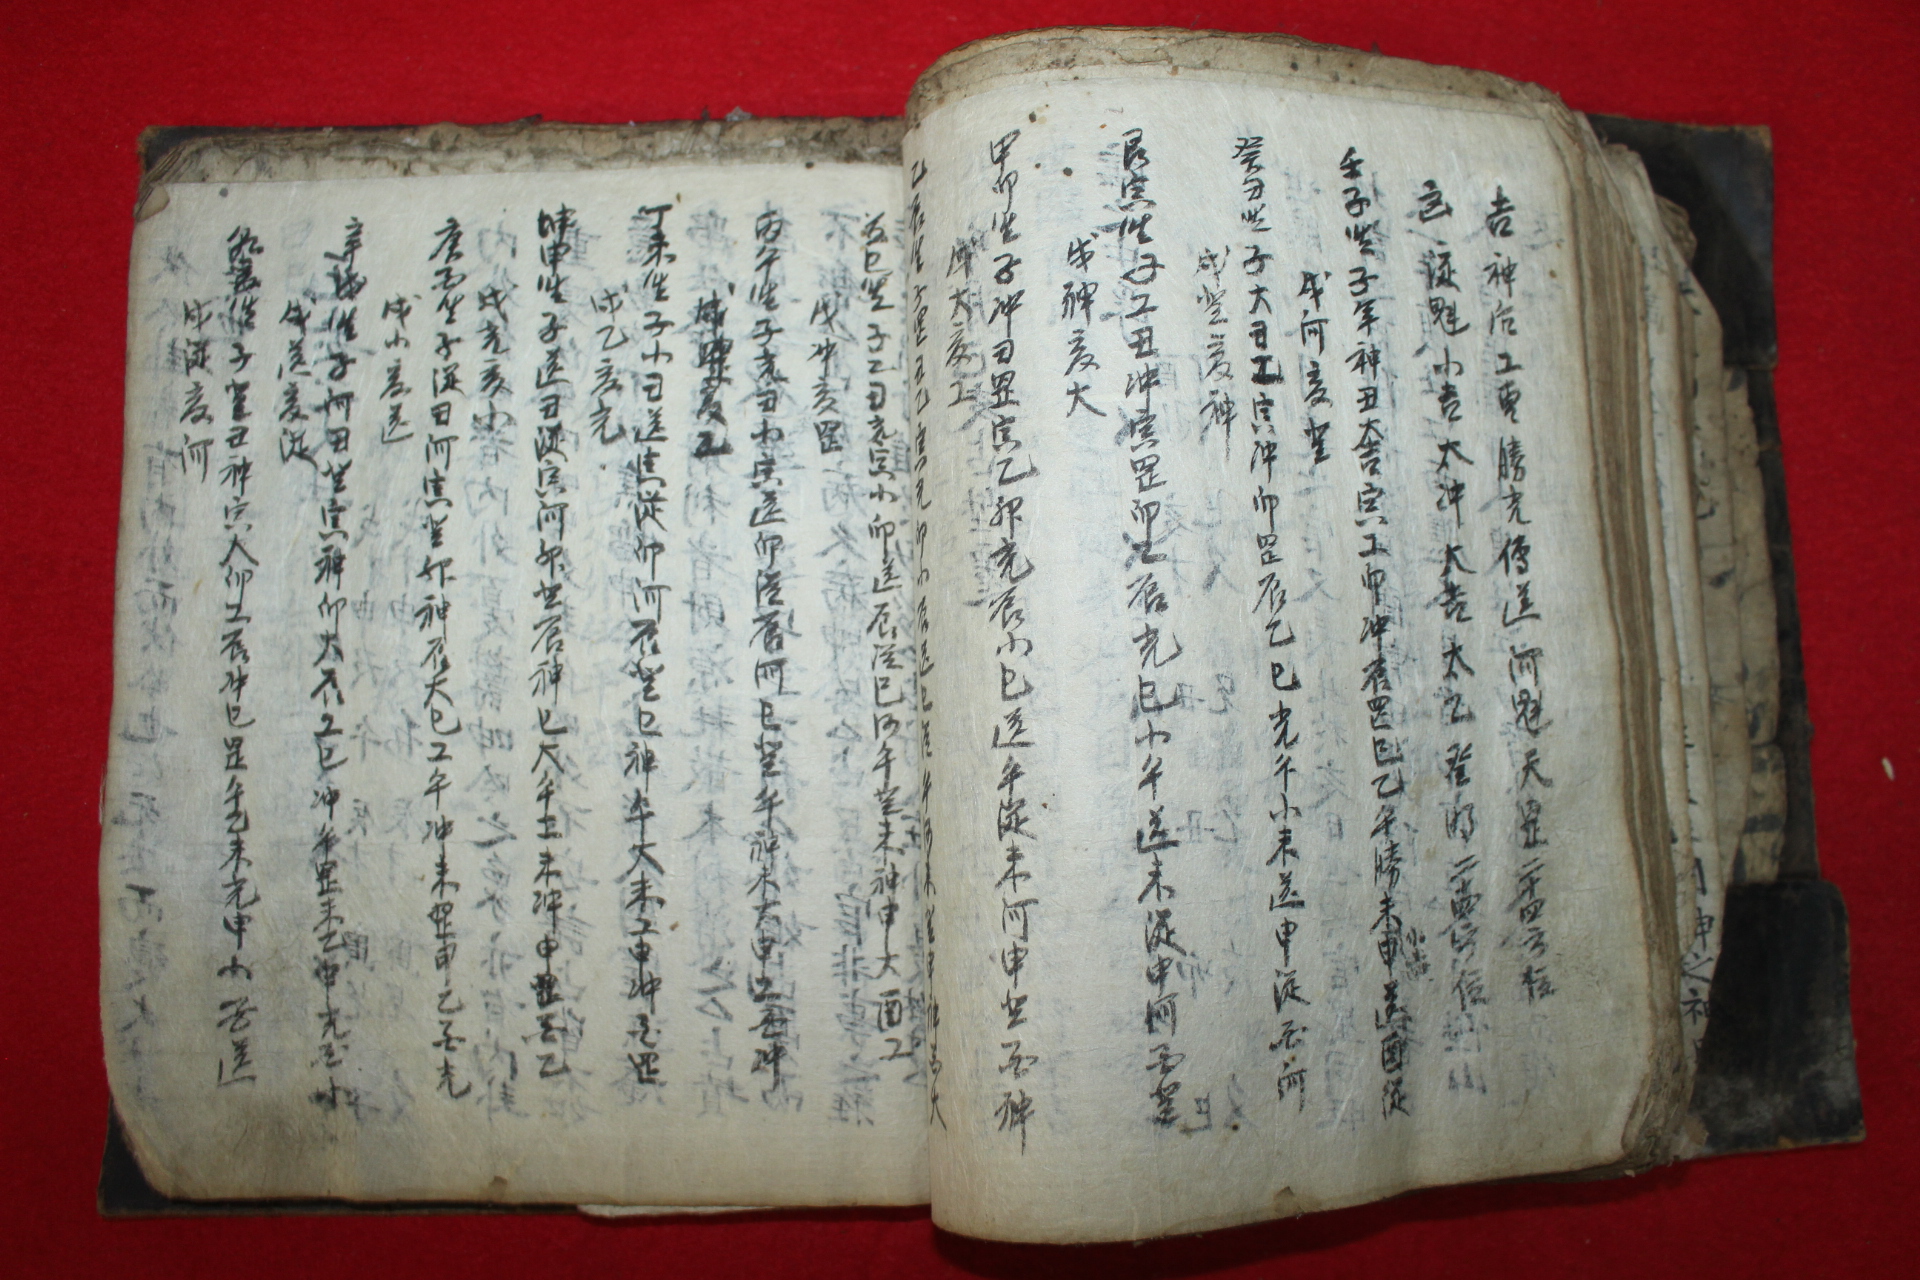 吉 神后 工 曺 勝光 傳送 河魁 天罡 二十四方位
凶 從魁 小吉 太冲 大吉 太乙 登明 二十四方位
壬子坐 子年神丑大吉寅工卯冲辰罡巳乙午勝未小吉申送酉從
戌河亥登
癸丑坐 子大丑工寅冲卯罡辰乙巳光午小未送申從酉河
戌登亥神
艮寅坐 子工丑冲寅罡卯乙辰光巳小午送未從申河酉登
戌神亥大
甲卯坐 子冲丑罡寅乙卯光辰小巳送午從未河申登酉神
戌大亥工
乙辰坐 子罡丑乙寅光卯小辰送巳從午河未登申神酉大
巳坐 子乙丑光寅小卯送辰從巳河午登未神申大酉工
戌冲亥罡
丙午坐 子光丑小寅送卯從辰河巳登午神未大申工酉冲
戌罡亥乙
丁未坐 子小丑送寅從卯河辰登巳神午大未工申冲酉罡
戌乙亥光
坤申坐 子送丑從寅河卯登辰神巳大午工未冲申罡酉乙
戌光亥小
庚酉坐 子從丑河寅登卯神辰大巳工午冲未罡申乙酉光
戌小亥送
辛戌坐 子河丑登寅神卯大辰工巳冲午罡未乙申光酉小
戌送亥從
亥坐 子登丑神寅大卯工辰冲巳罡午乙未光申小酉送
戌從亥河